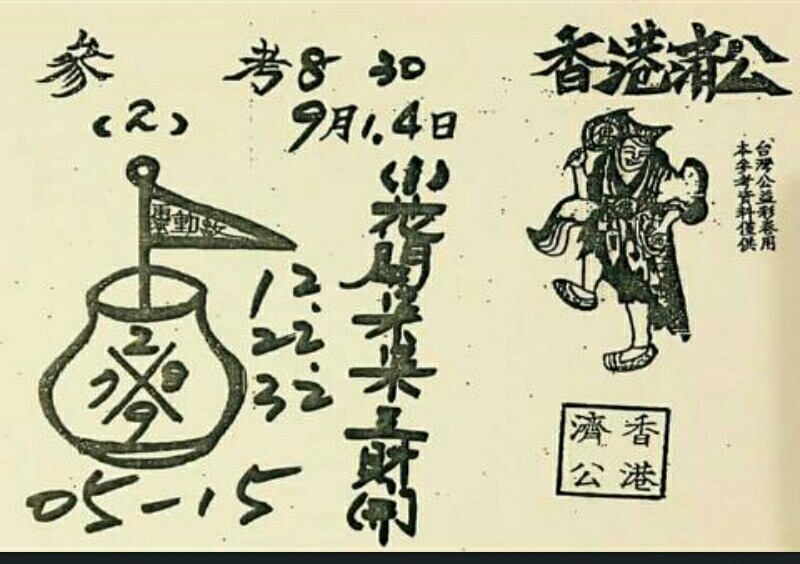 參 考 8 30
香港濟公
(2) 9月1.4日
台灣公益彩券用
本參考資料僅供
動數
花開朵朵
財
12.
22.
32
2
8
9
05-15
香港
濟公